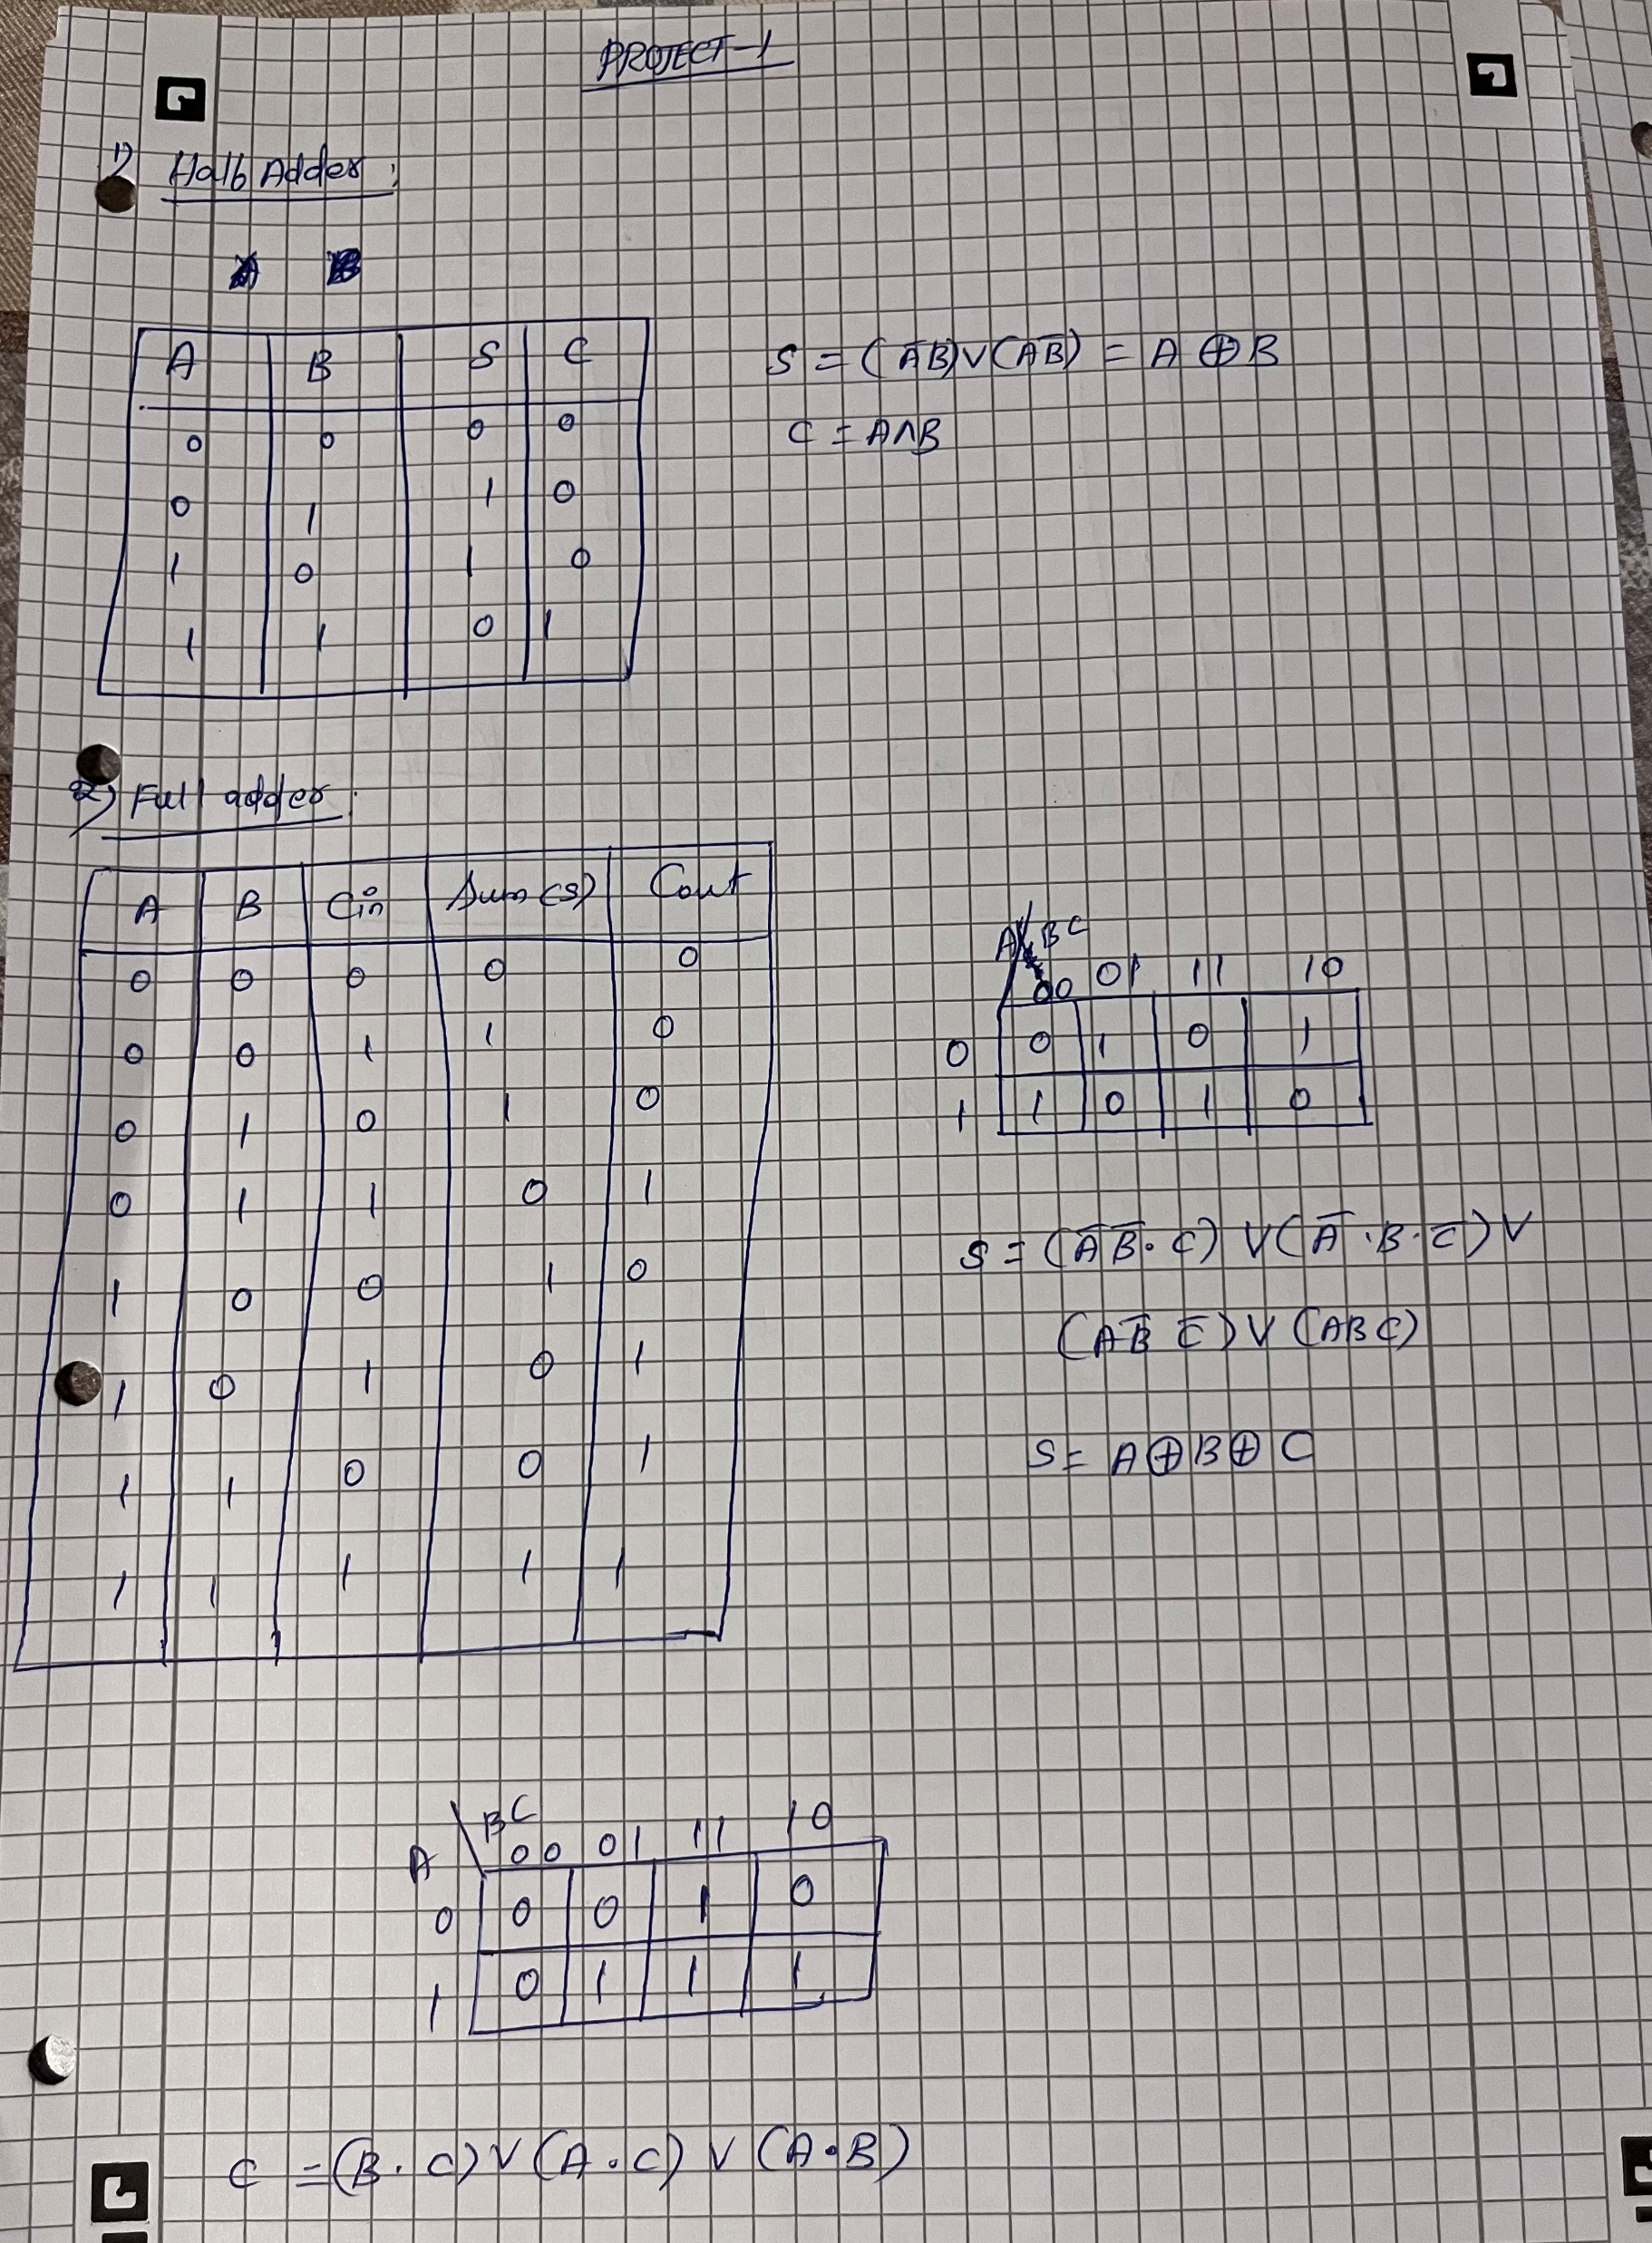 PROJECT-1
1) Half Adder :
A B S C
0 0 0 0
0 1 1 0
1 0 1 0
1 1 0 1
S = (A̅B)V(AB̅) = A ⊕ B
C = A∧B
2) Full adder :
A B Cin Sum(s) Cout
0 0 0 0 0
0 0 1 1 0
0 1 0 1 0
0 1 1 0 1
1 0 0 1 0
1 0 1 0 1
1 1 0 0 1
1 1 1 1 1
A\BC
00 01 11 10
0 0 1 0 1
1 1 0 1 0
S = (A̅ B̅ · C) V (A̅ · B · C̅) V
(A B̅ C̅) V (ABC)
S = A ⊕ B ⊕ C
A \ BC
00 01 11 10
0 0 0 1 0
1 0 1 1 1
C = (B · C) V (A · C) V (A · B)